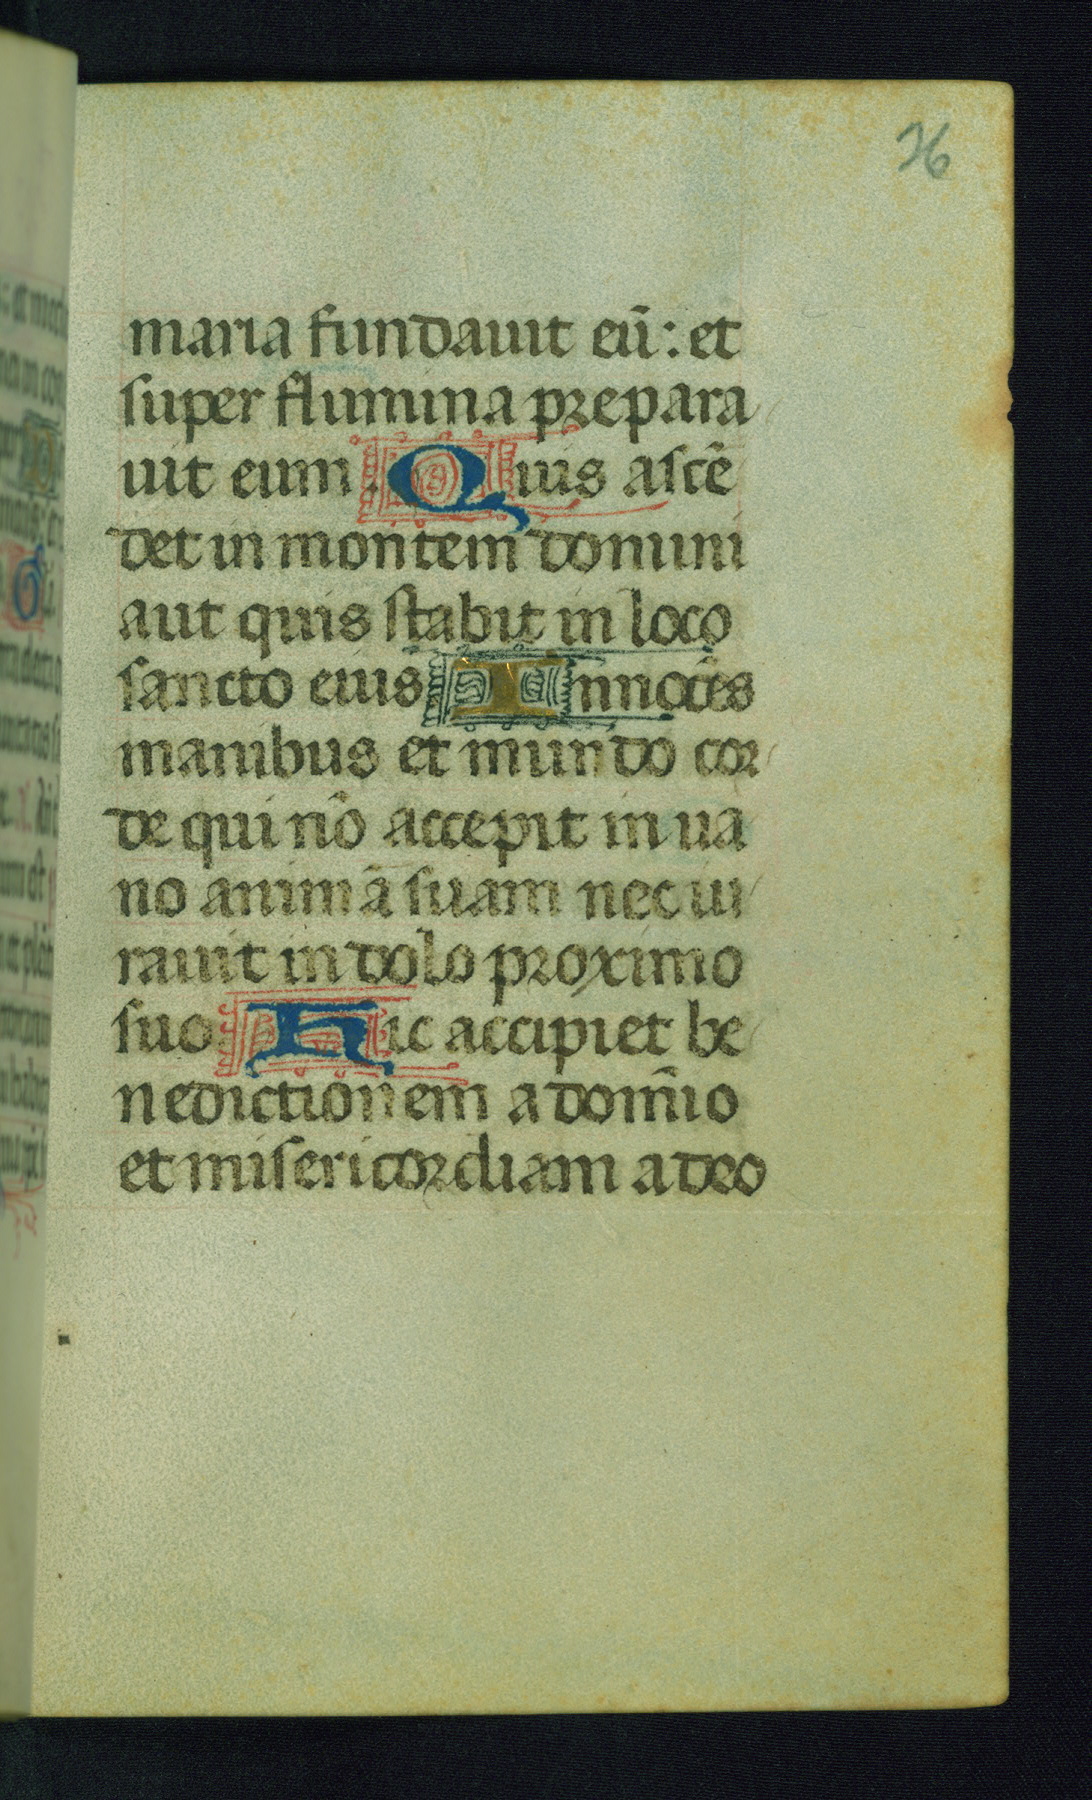 76
maria fundauit eū: et
super flumina prepara
uit eum Quis ascē
det in montem domini
aut quis stabit in loco
sancto eius Innocēs
manibus et mundo cor
de qui nō accepit in ua
no animā suam nec iu
rauit in dolo proximo
suo Hic accipiet be
nedictionem a dom̄io
et misericordiam a deo